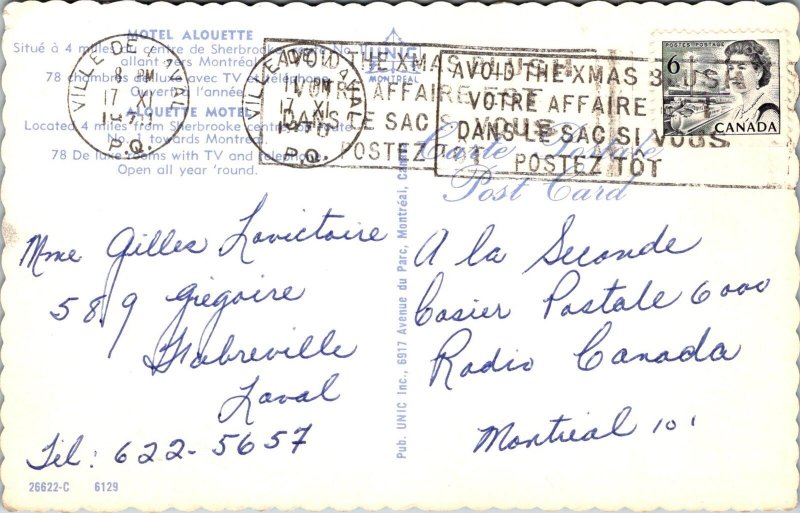 MOTEL ALOUETTE
Situé à 4 milles de centre de Sherbrooke, Route No. 1
allant vers Montréal
78 chambres de luxe avec TV et téléphone
Ouvert à l'année
ALOUETTE MOTEL
Located 4 miles from Sherbrooke centre on Route
No. 1 towards Montreal
78 De luxe rooms with TV and telephone
Open all year 'round.
UNIC
MONTRÉAL
VILLE DE LAVAL
8 PM
17 XI
P.Q.
VILLE DE LAVAL
PM
17 XI
P.Q.
AVOID THE XMAS RUSH
VOTRE AFFAIRE EST
DANS LE SAC SI VOUS
POSTEZ TÔT
AVOID THE XMAS RUSH
VOTRE AFFAIRE EST
DANS LE SAC SI VOUS
POSTEZ TÔT
POSTES POSTAGE
6
CANADA
Carte Postale
Post Card
Mme Gilles Lavictoire
589 Grégoire
Fabreville
Laval
Tel: 622-5657
26622-C 6129
Pub. UNIC Inc., 6917 Avenue du Parc, Montréal, Canada
A la Seconde
Casier Postale 6000
Radio Canada
Montreal 101